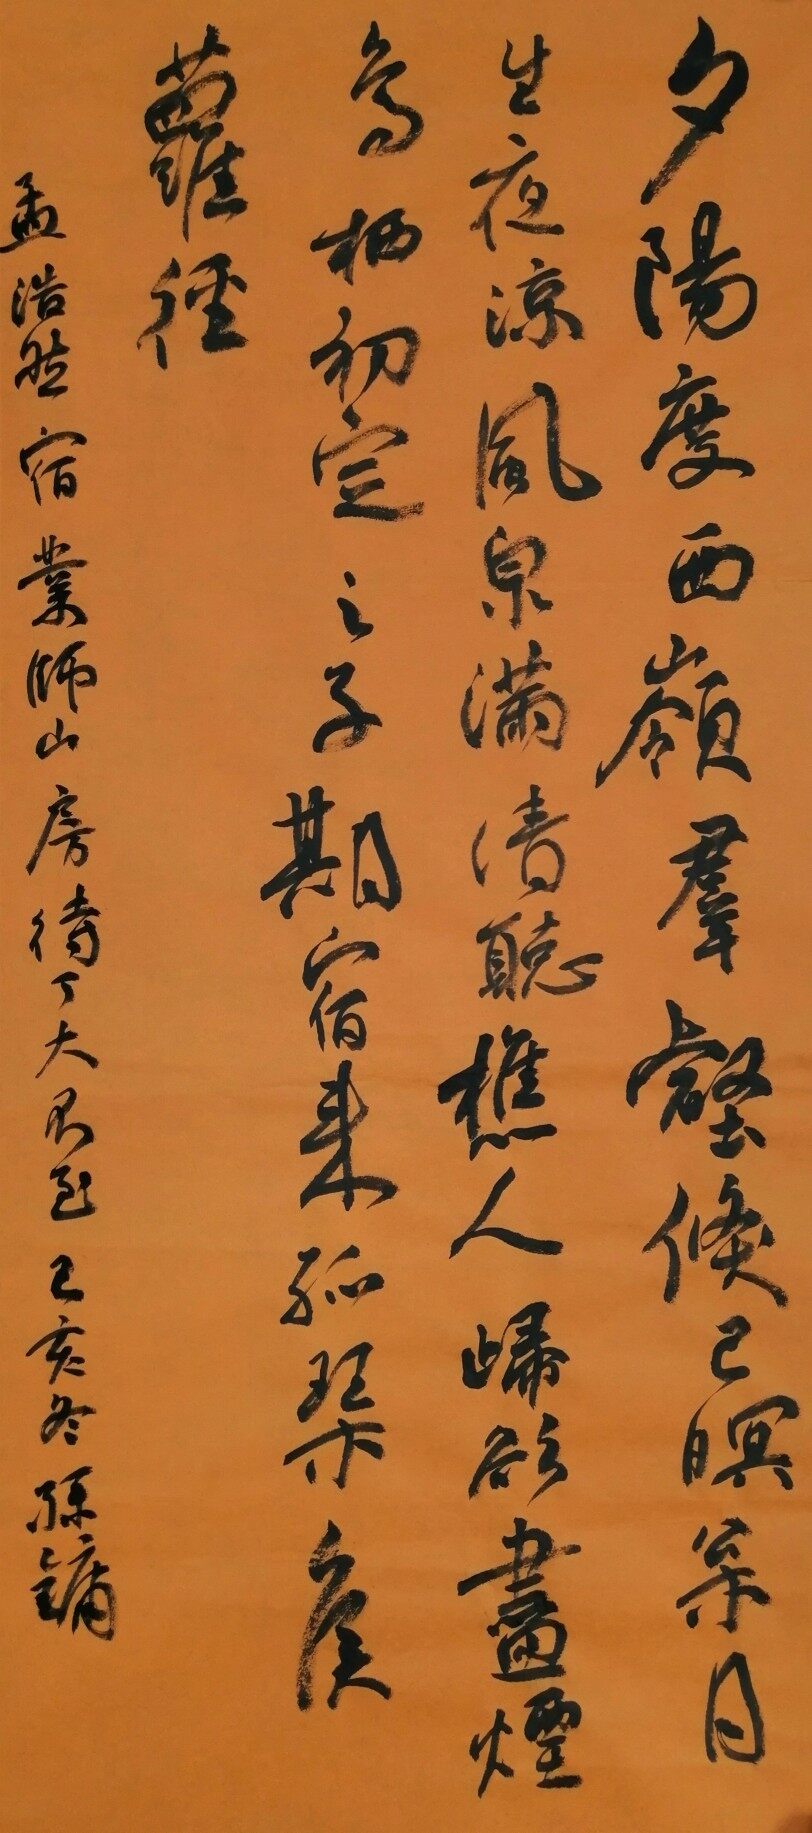 夕陽度西嶺羣壑倏已暝菘月
生夜涼風泉滿清聽樵人歸欲盡煙
鳥栖初定之子期宿來孤琴候
蘿徑
孟浩然宿業師山房待丁大不至己亥冬孫鏞